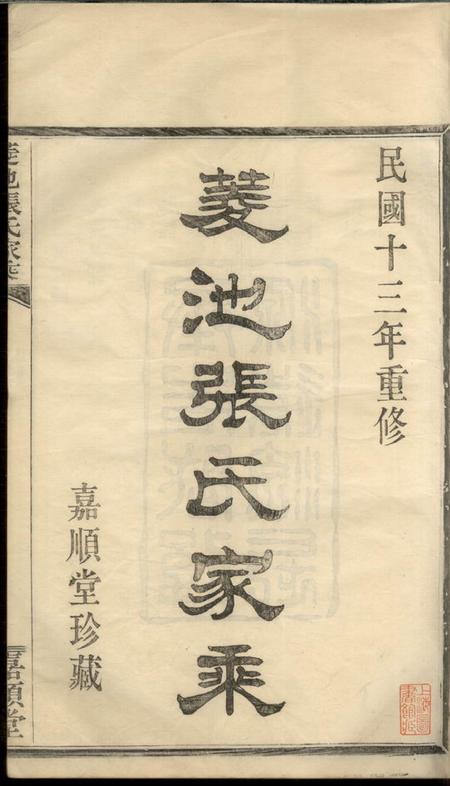 民國十三年重修
菱池張氏家乘
嘉順堂珍藏
菱池張氏家乘
嘉順堂